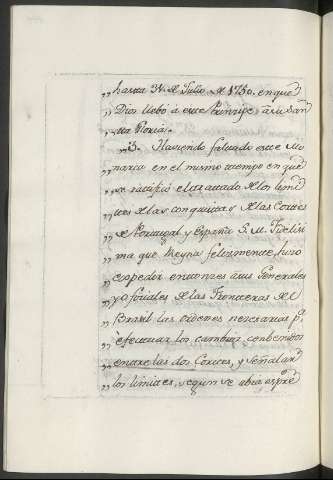 „ hasta 31. de Julio de 1750. en que
„ Dios llebó á este Principe á su San
„ ta Gloria.
„ 3. Haviendo faltado este Mo
„ narca en el mismo tiempo en que
„ se ratificó el tratado de los limi
„ tes de las conquistas de las Cortes
„ de Portugal y España S. M. Fidelisi
„ ma que Reyna felizmente, hizo
„ expedir entonzes á sus Generales
„ y oficiales de las Fronteras del
„ Brasil las ordenes necesarias pª.
„ efectuar los cambios conbenidos
„ entre las dos Cortes, y señalar
„ los limites, segun se abia expre